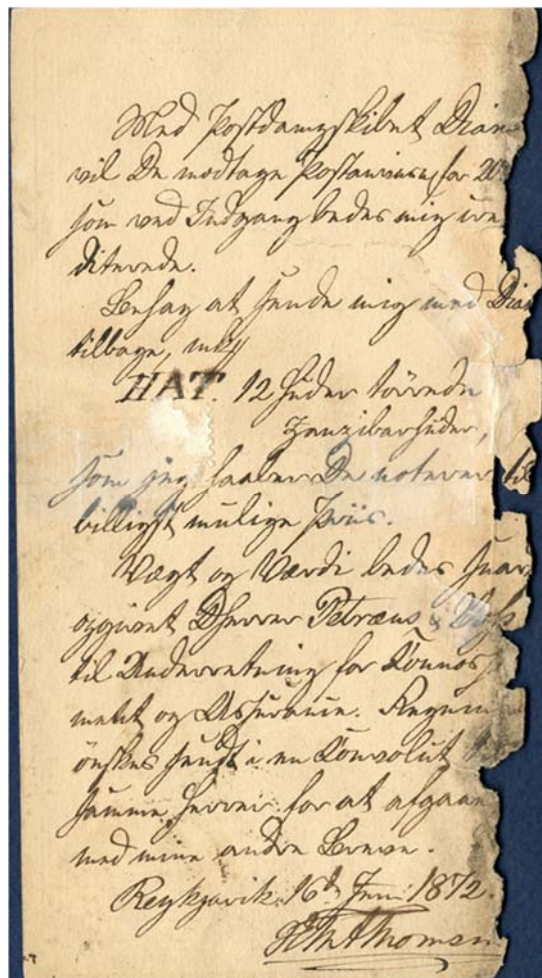 Med Postdampskibet Dian
vil De modtage Postanvisn, for 20
som ved Indgang bedes mig cre
diterede.
Behag at sende mig med Dian
tilbage, mkt
HAT. 12 Huder törrede
Zanzibarhuder,
som jeg haaber De noterer til
billigst mulige Priis.
Vægt og Værdi bedes snar
opgivet DHerrer Petræus &
til Underretning for Connos
ment og Assurance. Regnin
önskes sendt i en Convolut
samme Herrer for at afgaae
med mine andre Breve.
Reykjavik, 16d Juni 1872.
Thomsen